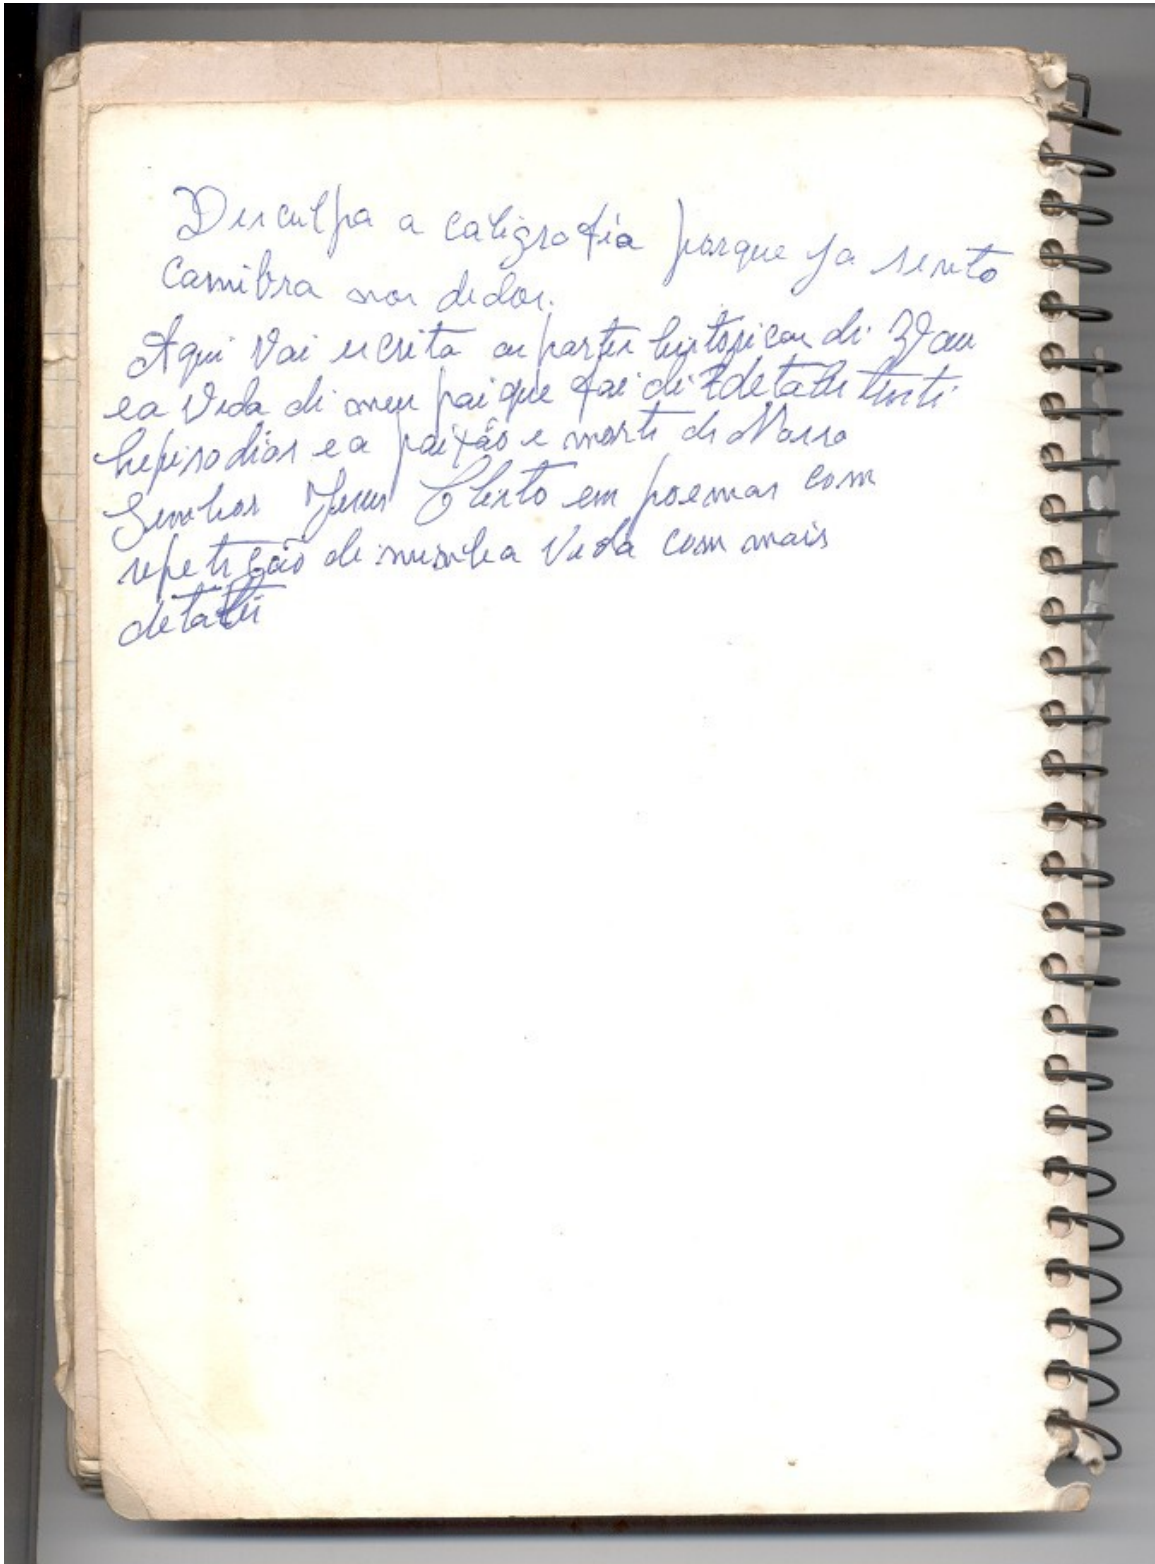 Disculpa a caligrafia porque ja sinto
camibra nos dedos.
Aqui Vai escrita as partes historicas di
e a Vida di meu pai que foi di detalhi
hepisodios e a paixão e morti di Nosso
Senhor Jesus Cristo em poemas com
repetição di minha Vida com mais
detalhi